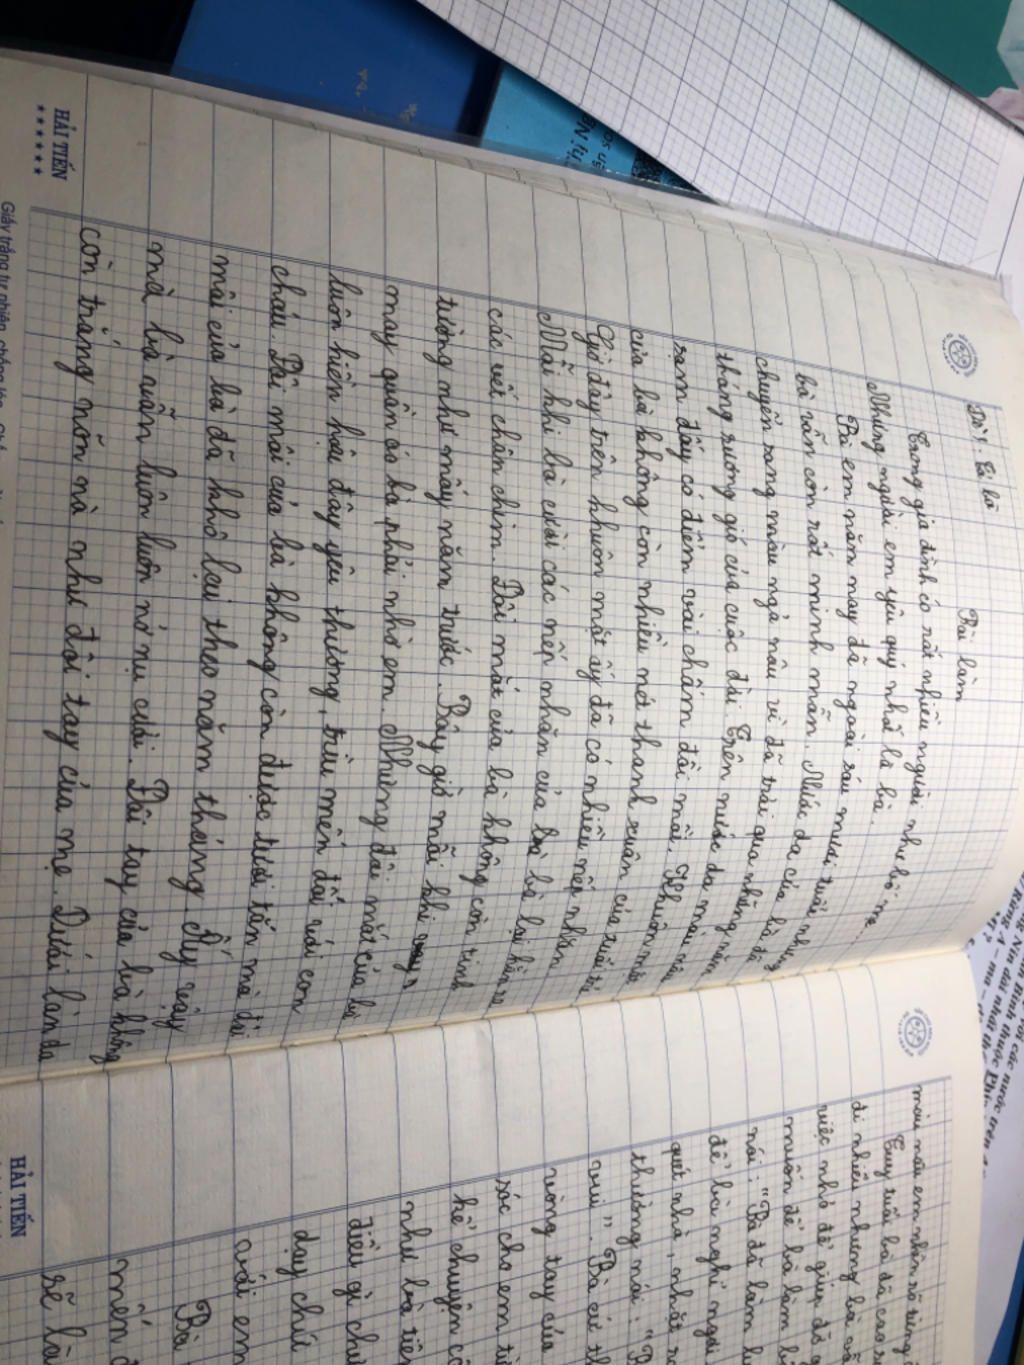 Đề 1: Tả bà
Bài làm
Trong gia đình có rất nhiều người như bố mẹ...
Nhưng người em yêu quý nhất là bà.
Bà em năm nay đã ngoài sáu mươi tuổi nhưng
bà vẫn còn rất minh mẫn. Nước da của bà đã
chuyển sang màu ngả nâu vì đã trải qua những năm
tháng sương gió của cuộc đời. Trên nước da màu nâu
sạm đấy có điểm vài chấm đồi mồi. Khuôn mặt
của bà không còn nhiều nét thanh xuân của tuổi trẻ
Giờ đây trên khuôn mặt ấy đã có nhiều nếp nhăn
Mỗi khi bà cười các nếp nhăn của bà lại hằn ra
các vết chân chim. Đôi mắt của bà không còn tinh
tường như mấy năm trước. Bây giờ mỗi khi
may quần áo bà phải nhờ em. Nhưng đôi mắt của bà
luôn hiền hậu đầy yêu thương, trìu mến đối với con
cháu. Đôi môi của bà không còn được tươi tắn mà đôi
môi của bà đã khô lại theo năm tháng ấy vậy
mà bà vẫn luôn luôn nở nụ cười. Đôi tay của bà không
còn trắng nõn nà như đôi tay của mẹ. Dưới làn da
màu nâu em nhìn rõ từng
Tuy tuổi bà đã cao
đi nhiều nhưng bà vẫ
việc nhỏ để giúp đỡ
muốn để bà làm
nói: "Bà đã làm
để bà nghỉ ngơi
quét nhà, nhặt
thường nói: "B
vui". Bà cứ th
vòng tay của
sóc cho em từ
kể chuyện c
như bà tiên
điều gì chư
dạy chú
với em
Bà
mến
sẽ là
HẢI TIẾN
HẢI TIẾN
Giấy trắng tự nhiên, chống lóa